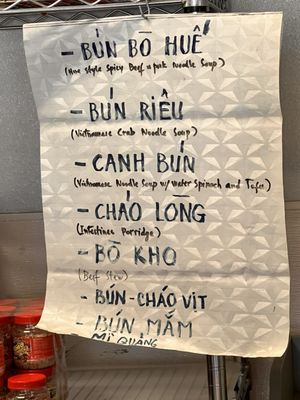 - BÚN BÒ HUẾ
(Hue style Spicy Beef & pork Noodle Soup)
- BÚN RIÊU
(Vietnamese Crab Noodle Soup)
- CANH BÚN
(Vietnamese Noodle Soup w/ Water Spinach and Tofu)
- CHÁO LÒNG
(Intestines Porridge)
- BÒ KHO
(Beef Stew)
- BÚN-CHÁO VỊT
- BÚN MẮM
MÌ QUẢNG